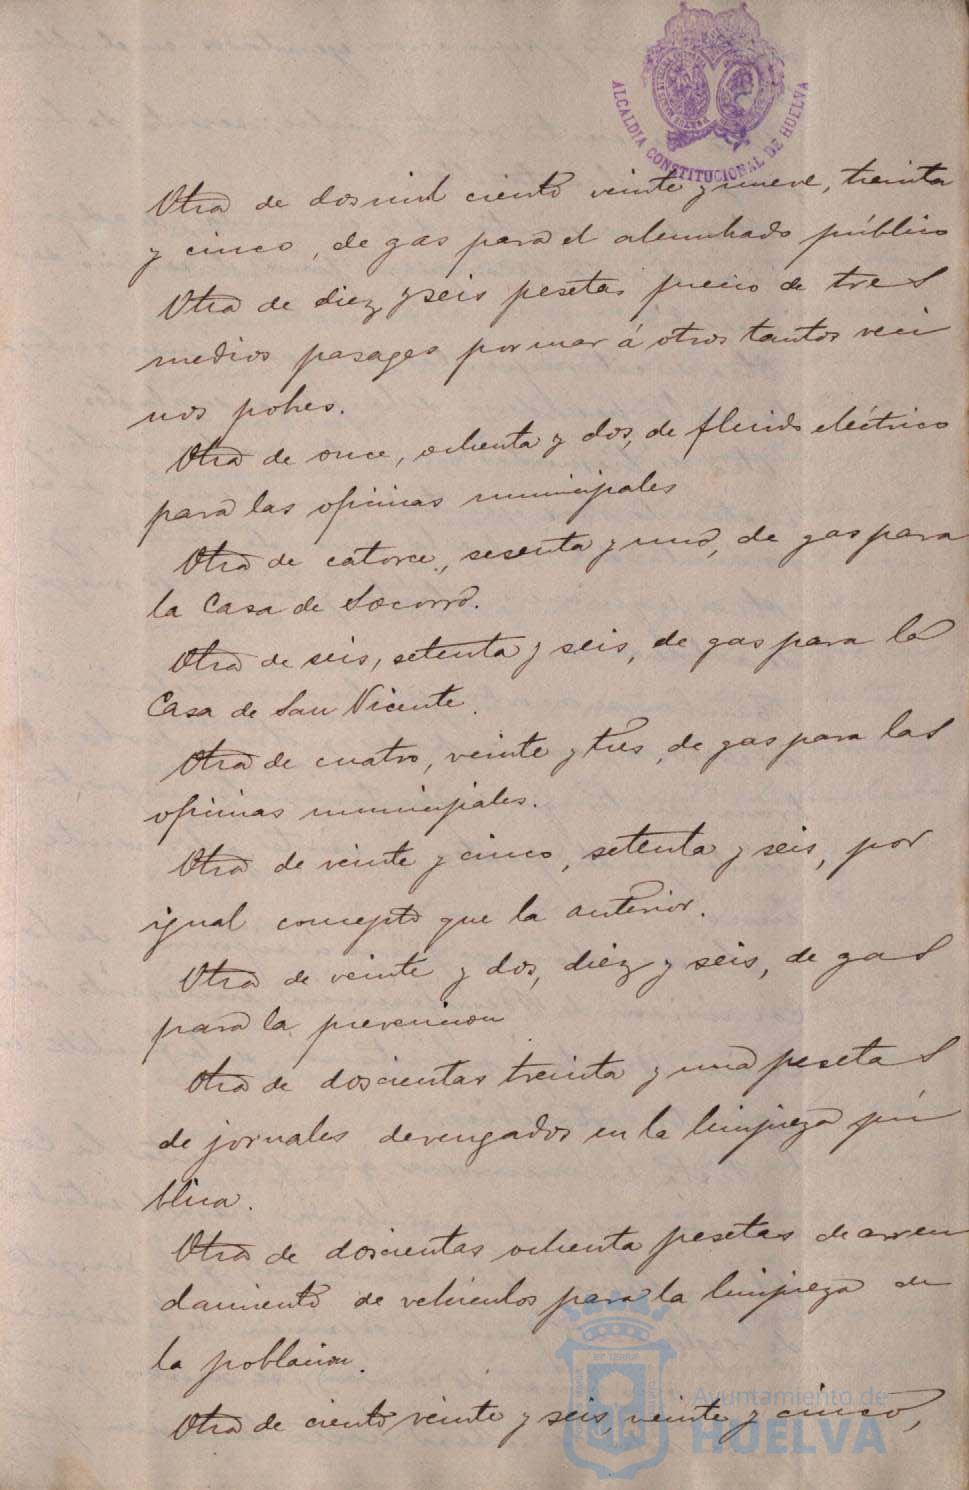 ALCALDIA CONSTITUCIONAL DE HUELVA
Otra de dos mil ciento veinte y nueve, treinta
y cinco, de gas para el alumbrado público
Otra de diez y seis pesetas precio de tres
medios pasages por mar á otros tantos veci
nos pobres.
Otra de once, ochenta y dos, de fluido eléctrico
para las oficinas municipales
Otra de catorce, sesenta y una, de gas para
la Casa de Socorro.
Otra de seis, setenta y seis, de gas para la
Casa de San Vicente.
Otra de cuatro, veinte y tres, de gas para las
oficinas municipales.
Otra de veinte y cinco, setenta y seis, por
igual concepto que la anterior.
Otra de veinte y dos, diez y seis, de gas
para la prevencion
Otra de doscientas treinta y una pesetas
de jornales devengados en la limpieza pú
blica.
Otra de doscientas ochenta pesetas de arren
damiento de vehiculos para la limpieza de
la poblacion.
Otra de ciento veinte y seis, veinte y cinco,
Ayuntamiento de
HUELVA